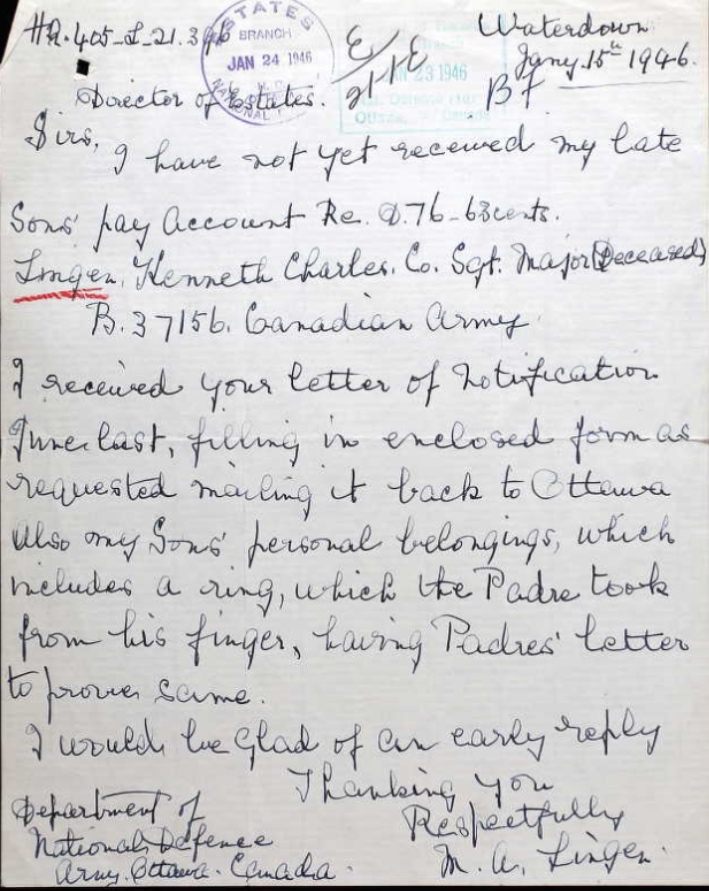 HQ.405-L-21.396
ESTATES
BRANCH
JAN 24 1946
NATIONAL
23 1946
Ottawa, Canada
Waterdown
Jany. 15th 1946.
Director of Estates.
BF
Sirs,
I have not yet received my late
Sons' pay Account Re. $.76-63cents.
Lingen, Kenneth Charles. Co. Sgt. Major (Deceased)
B.37156. Canadian Army
I received your letter of Notification
June last, filling in enclosed form as
requested mailing it back to Ottawa
also my Sons' personal belongings, which
includes a ring, which the Padre took
from his finger, having Padres' letter
to prove same.
I would be glad of an early reply
Thanking you
Respectfully
M. A. Lingen.
Department of
National Defence
Army. Ottawa. Canada.